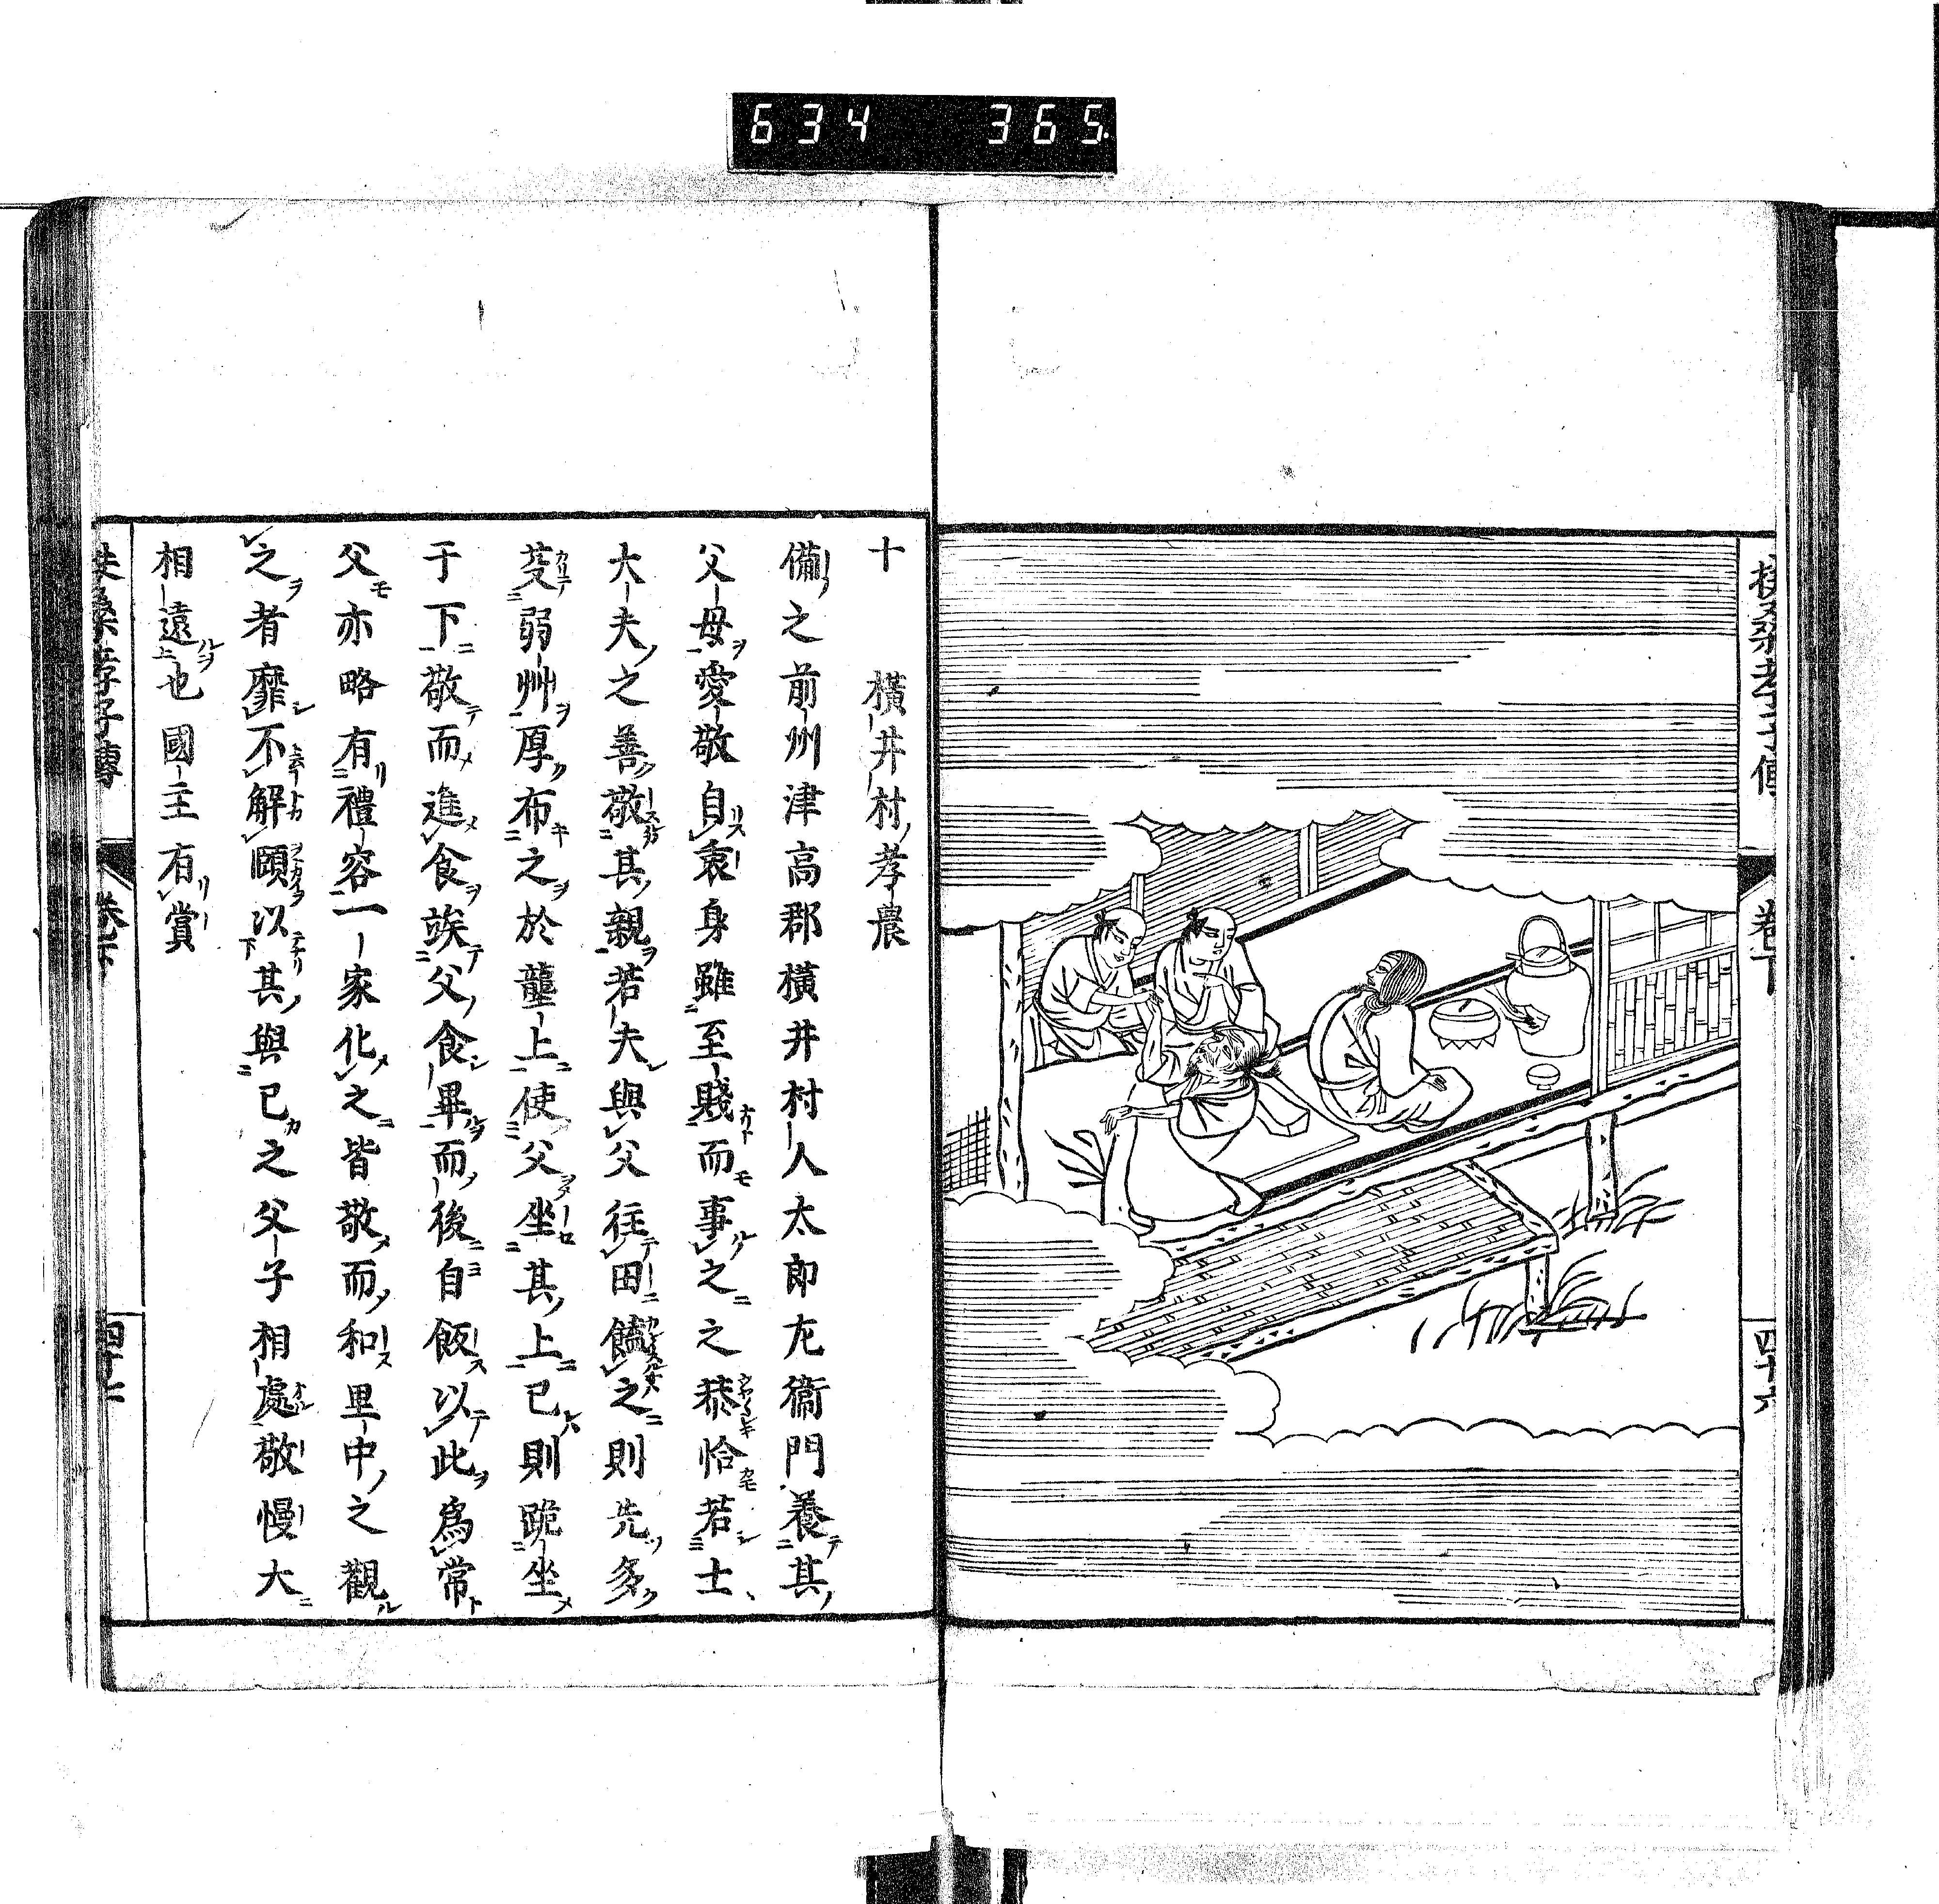 634 365
扶桑孝子傳
卷下
四十六
十 橫井村孝農
備之前州津高郡橫井村人太郎左衞門養其
父母愛敬自衷身雖至賤而事之之恭恰若士
大夫之善敬其親若夫與父往田饁之則先多
芟弱艸厚布之於壟上使父坐其上已則跪坐
于下敬而進食竢父食畢而後自飯以此爲常
父亦略有禮容一家化之皆敬而和里中之觀
之者靡不解頤以其與已之父子相處敬慢大
相遠也國主有賞
扶桑孝子傳
卷下
四十七